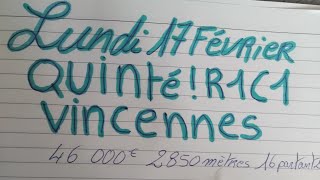 Lundi 17 Février
QUINté! R1C1
VINCENNES
46 000€ 2850 mètres 16 partants